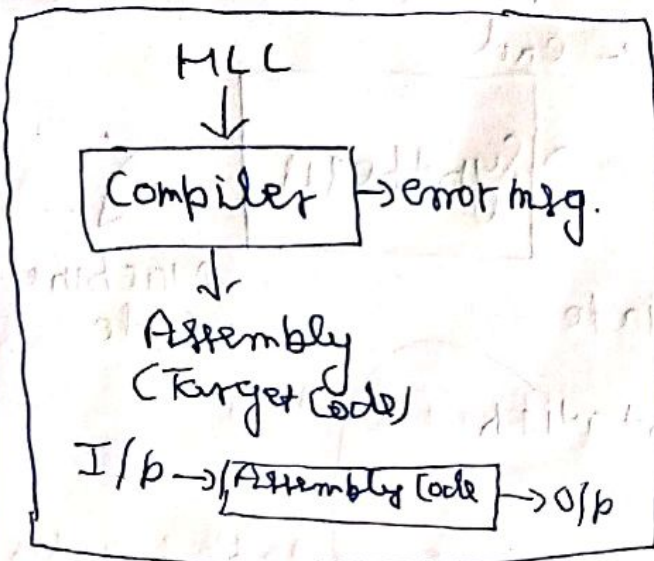 HLL
Compiler → error msg.
Assembly
(Target Code)
I/p → Assembly Code → O/p